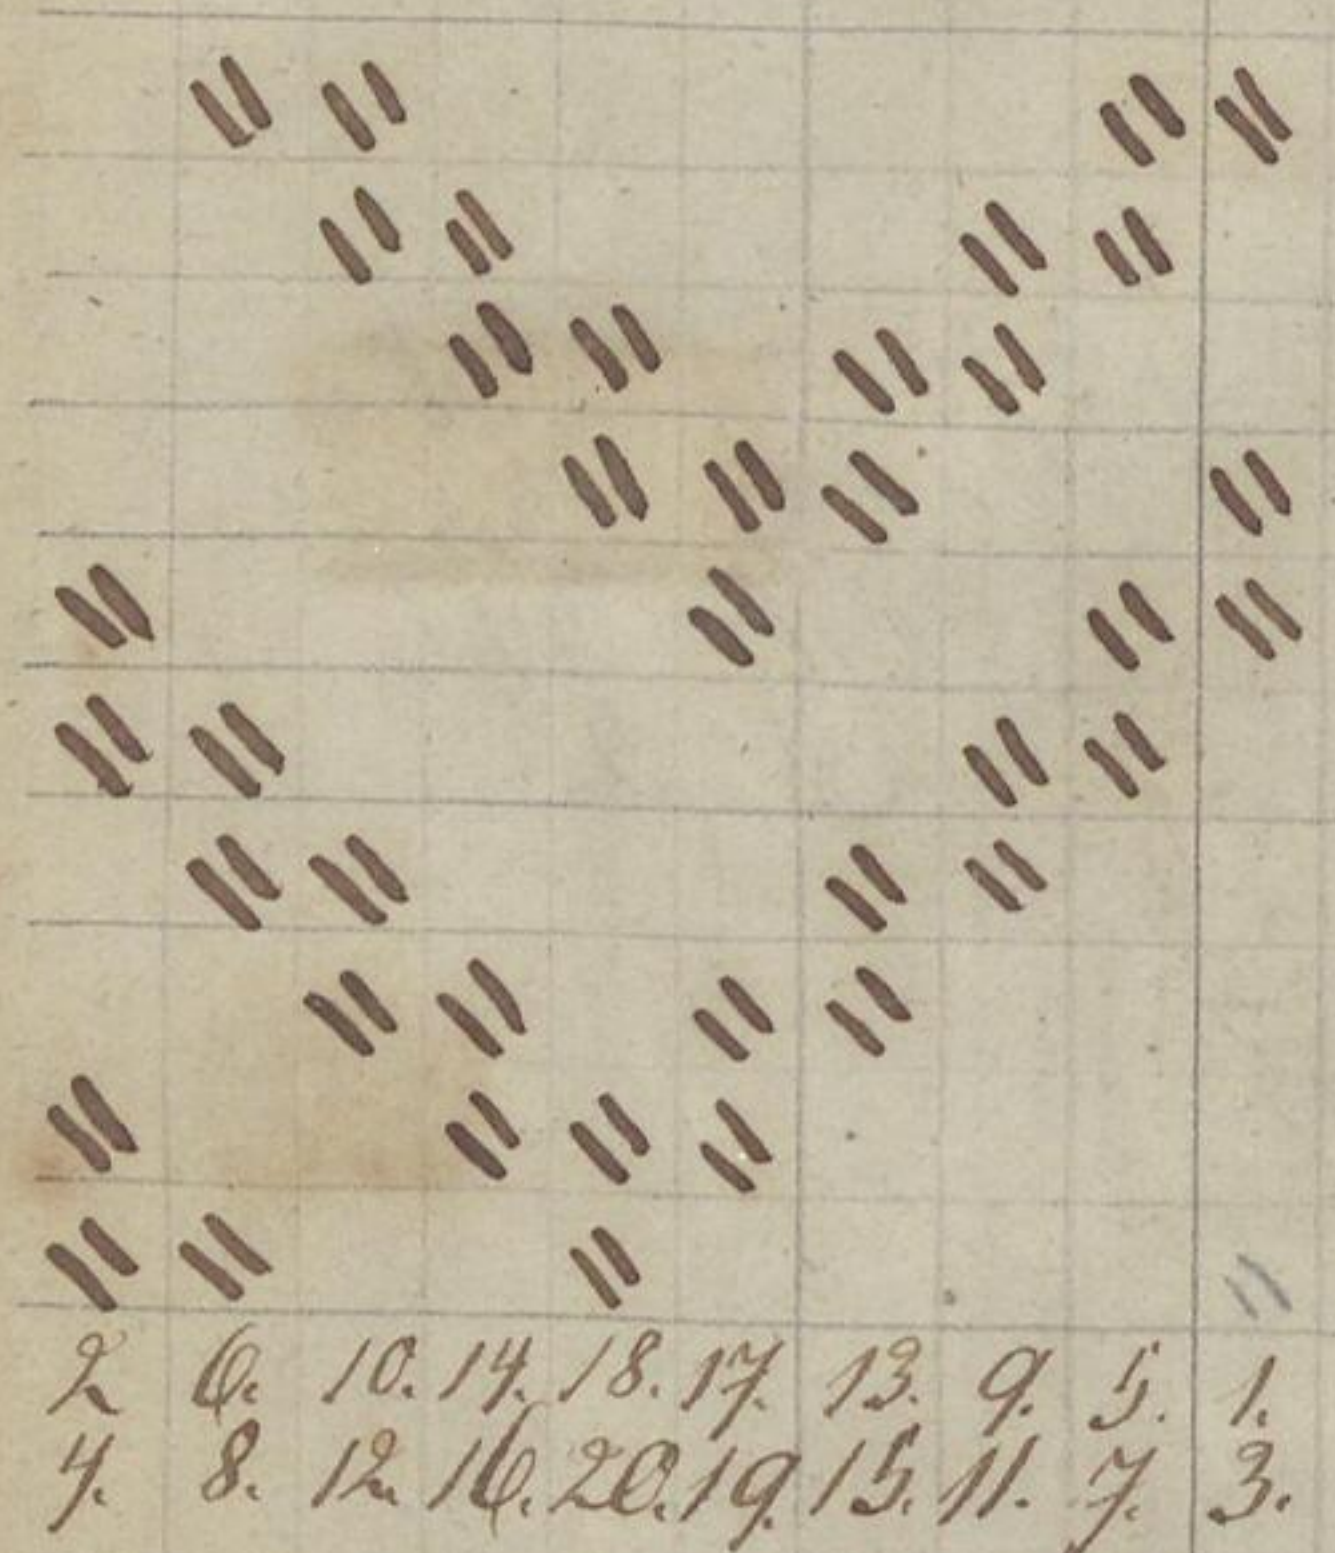 2 6. 10. 14. 18. 17. 13. 9. 5. 1.
4. 8. 12. 16. 20. 19. 15. 11. 7. 3.